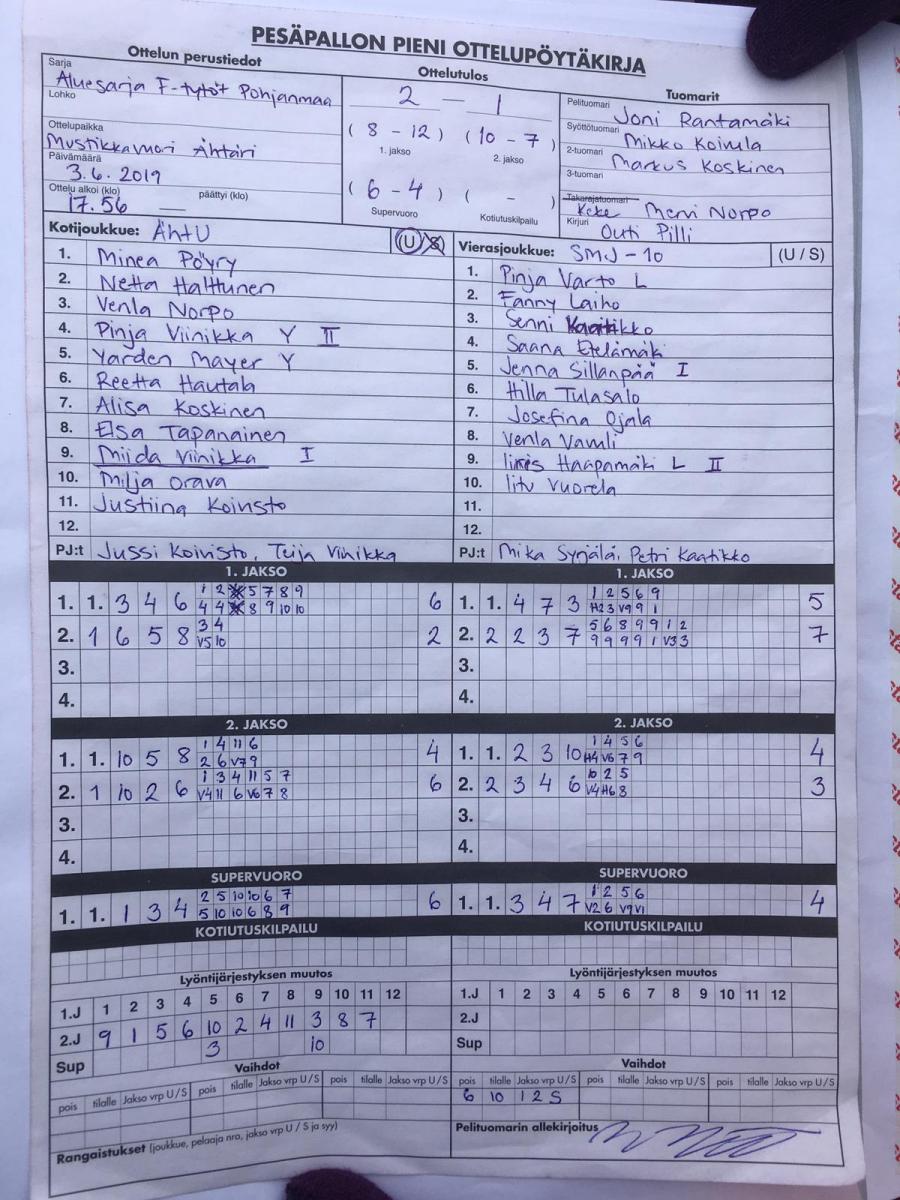 PESÄPALLON PIENI OTTELUPÖYTÄKIRJA
Ottelun perustiedot
Sarja
Aluesarja F-tytöt Pohjanmaa
Lohko
Ottelupaikka
Mustikkavuori Ähtäri
Päivämäärä
3.6.2019
Ottelu alkoi (klo) päättyi (klo)
17.56 —
Ottelutulos
2 – 1
( 8 – 12 ) ( 10 – 7 )
1. jakso 2. jakso
( 6 – 4 ) ( – )
Supervuoro Kotiutuskilpailu
Tuomarit
Pelituomari Joni Rantamäki
Syöttötuomari Mikko Koivula
2-tuomari Markus Koskinen
3-tuomari
Takarajatuomari Mervi Norpo
Kirjuri Outi Pilli
Kotijoukkue: ÄhtU (U/S)
1. Minea Pöyry
2. Netta Halttunen
3. Venla Norpo
4. Pinja Viinikka Y II
5. Yarden Mayer Y
6. Reetta Hautala
7. Alisa Koskinen
8. Elsa Tapanainen
9. Miida Viinikka I
10. Milja Orava
11. Justiina Koivisto
12.
PJ:t Jussi Koivisto, Teija Viinikka
Vierasjoukkue: SMJ-10 (U / S)
1. Pinja Varto L
2. Fanny Laiho
3. Senni Kaatikko
4. Saana Etelämäki
5. Jenna Sillanpää I
6. Hilla Tulasalo
7. Josefina Ojala
8. Venla
9. Iiris Haapamäki L II
10. Iitu Vuorela
11.
12.
PJ:t Mika Syrjälä, Petri Kaatikko
1. JAKSO
1 2 5 7 8 9
1. 1. 3 4 6 4 4 8 9 10 10 6
3 4
2. 1 6 5 8 V5 10 2
3.
4.
1. JAKSO
1 2 5 6 9
1. 1. 4 7 3 H2 3 V9 9 1 5
5 6 8 9 9 1 2
2. 2 2 3 7 9 9 9 9 1 V3 3 7
3.
4.
2. JAKSO
1 4 11 6
1. 1. 10 5 8 2 6 V7 9 4
1 3 4 11 5 7
2. 1 10 2 6 V4 11 6 V6 7 8 6
3.
4.
2. JAKSO
1 4 5 6
1. 1. 2 3 10 H4 V6 7 9 4
10 2 5
2. 2 3 4 6 V4 H6 8 3
3.
4.
SUPERVUORO
2 5 10 10 6 7
1. 1. 1 3 4 5 10 10 6 8 9 6
SUPERVUORO
1 2 5 6
1. 1. 3 4 7 V2 6 V9 V1 4
KOTIUTUSKILPAILU
KOTIUTUSKILPAILU
Lyöntijärjestyksen muutos
1.J 1 2 3 4 5 6 7 8 9 10 11 12
2.J 9 1 5 6 10 2 4 11 3 8 7
Sup 3 10
Lyöntijärjestyksen muutos
1.J 1 2 3 4 5 6 7 8 9 10 11 12
2.J
Sup
Vaihdot
pois tilalle Jakso vrp U/S pois tilalle Jakso vrp U/S pois tilalle Jakso vrp U/S
Vaihdot
pois tilalle Jakso vrp U/S pois tilalle Jakso vrp U/S pois tilalle Jakso vrp U/S
6 10 1 2 S
Rangaistukset (joukkue, pelaaja nro, jakso vrp U / S ja syy)
Pelituomarin allekirjoitus